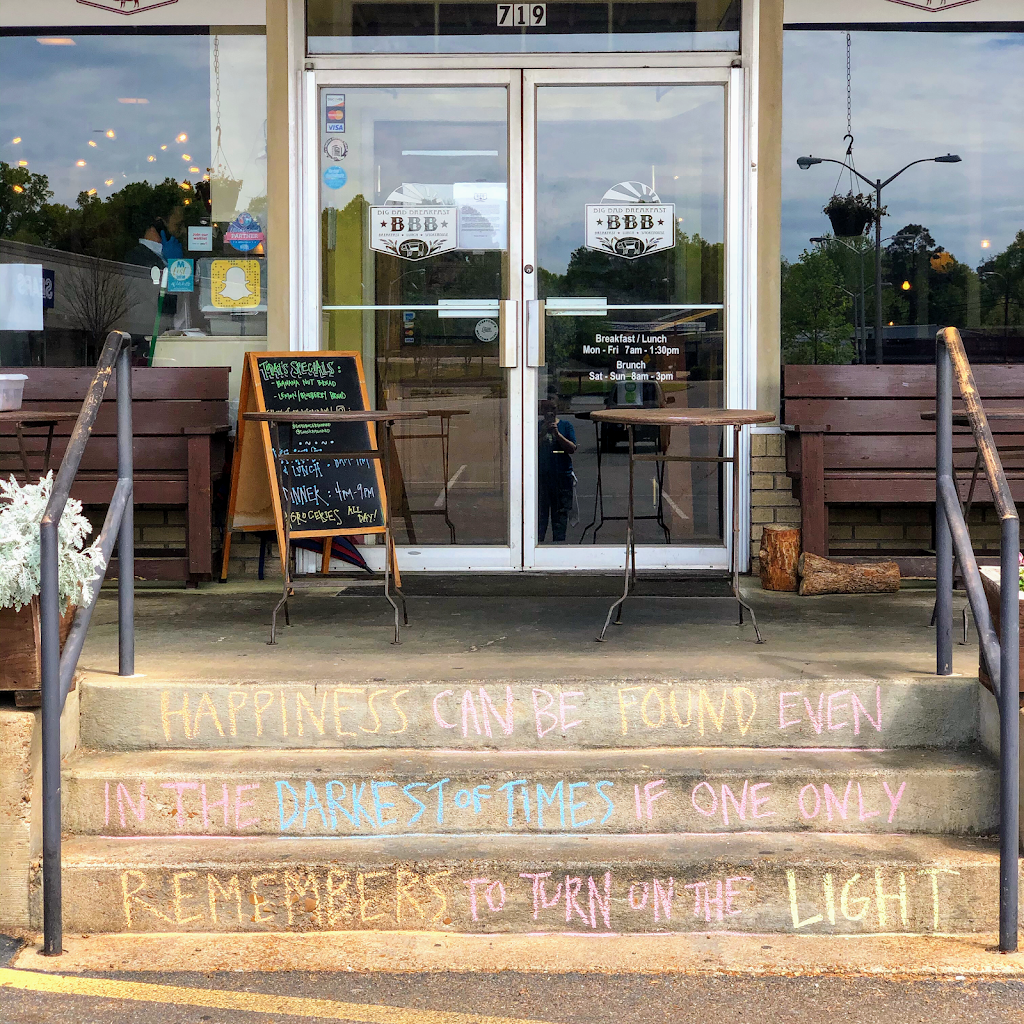 719
VISA
BIG BAD BREAKFAST
BBB
BREAKFAST • LUNCH • SMOKEHOUSE
BIG BAD BREAKFAST
BBB
BREAKFAST • LUNCH • SMOKEHOUSE
PARTNER
Breakfast / Lunch
Mon - Fri 7am - 1:30pm
Brunch
Sat - Sun 8am - 3pm
TODAY'S SPECIALS:
- BANANA NUT BREAD
& LUNCH :
DINNER : 4PM-9PM
GROCERIES ALL DAY!
HAPPINESS CAN BE FOUND EVEN
IN THE DARKEST OF TIMES IF ONE ONLY
REMEMBERS TO TURN ON THE LIGHT